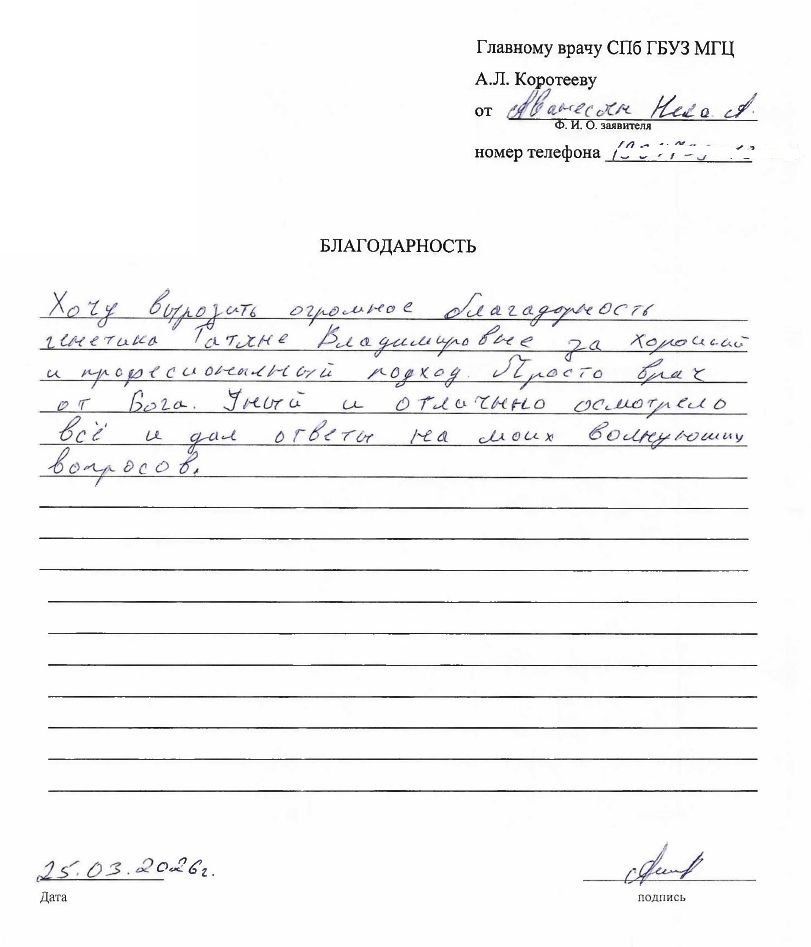 Главному врачу СПб ГБУЗ МГЦ
А.Л. Коротееву
от Аванесян А.
Ф. И. О. заявителя
номер телефона
БЛАГОДАРНОСТЬ
Хочу вырозить огромное благадорность
генетика Татяне Владимировне за хороший
и професиональный подход. Просто врач
от Бога. Умый и отлично осмотрело
всё и дал ответы на моих волнующих
вопросов.
25.03.2026г.
Дата
подпись